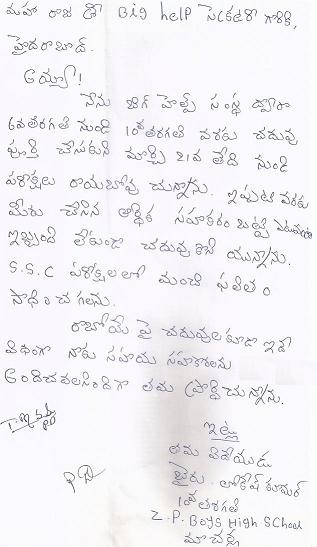 మహా రాజ శ్రీ Big help సెక్రటరీ గారికి,
హైదరాబాద్.
అయ్యా!
నేను బిగ్ హెల్ప్ సంస్థ ద్వారా
6వతరగతి నుండి 10వతరగతి వరకు చదువు
పూర్తి చేసుకుని మార్చి 21వ తేది నుండి
పరీక్షలు రాయబోవు చున్నాను. ఇప్పటి వరకు
మీరు చేసిన ఆర్థిక సహకారం బట్టి ఎటువంటి
ఇబ్బంది లేకుండా చదువుకొని యున్నాను.
S.S.C పరీక్షలలో మంచి ఫలితం
సాధించగలను.
రాబోయే పై చదువులకూడా ఇదే
విధంగా నాకు సహయ సహకారలను
అందించవలసిందిగా తమ ప్రార్థిచున్నాను.
ఇట్లు
తమ విదేయుడు
లోకేష్ కుమార్
10వతరగతి
Z.P. Boys High School
మాచర్ల